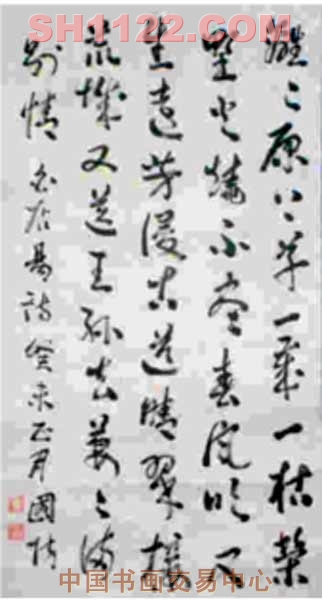 SH1122.COM
離々原上草一歲一枯榮
野火燒不盡春風吹又
生遠芳侵古道晴翠接
荒城又送王孫去萋々滿
別情 白居易詩 癸未正月國
中国书画交易中心